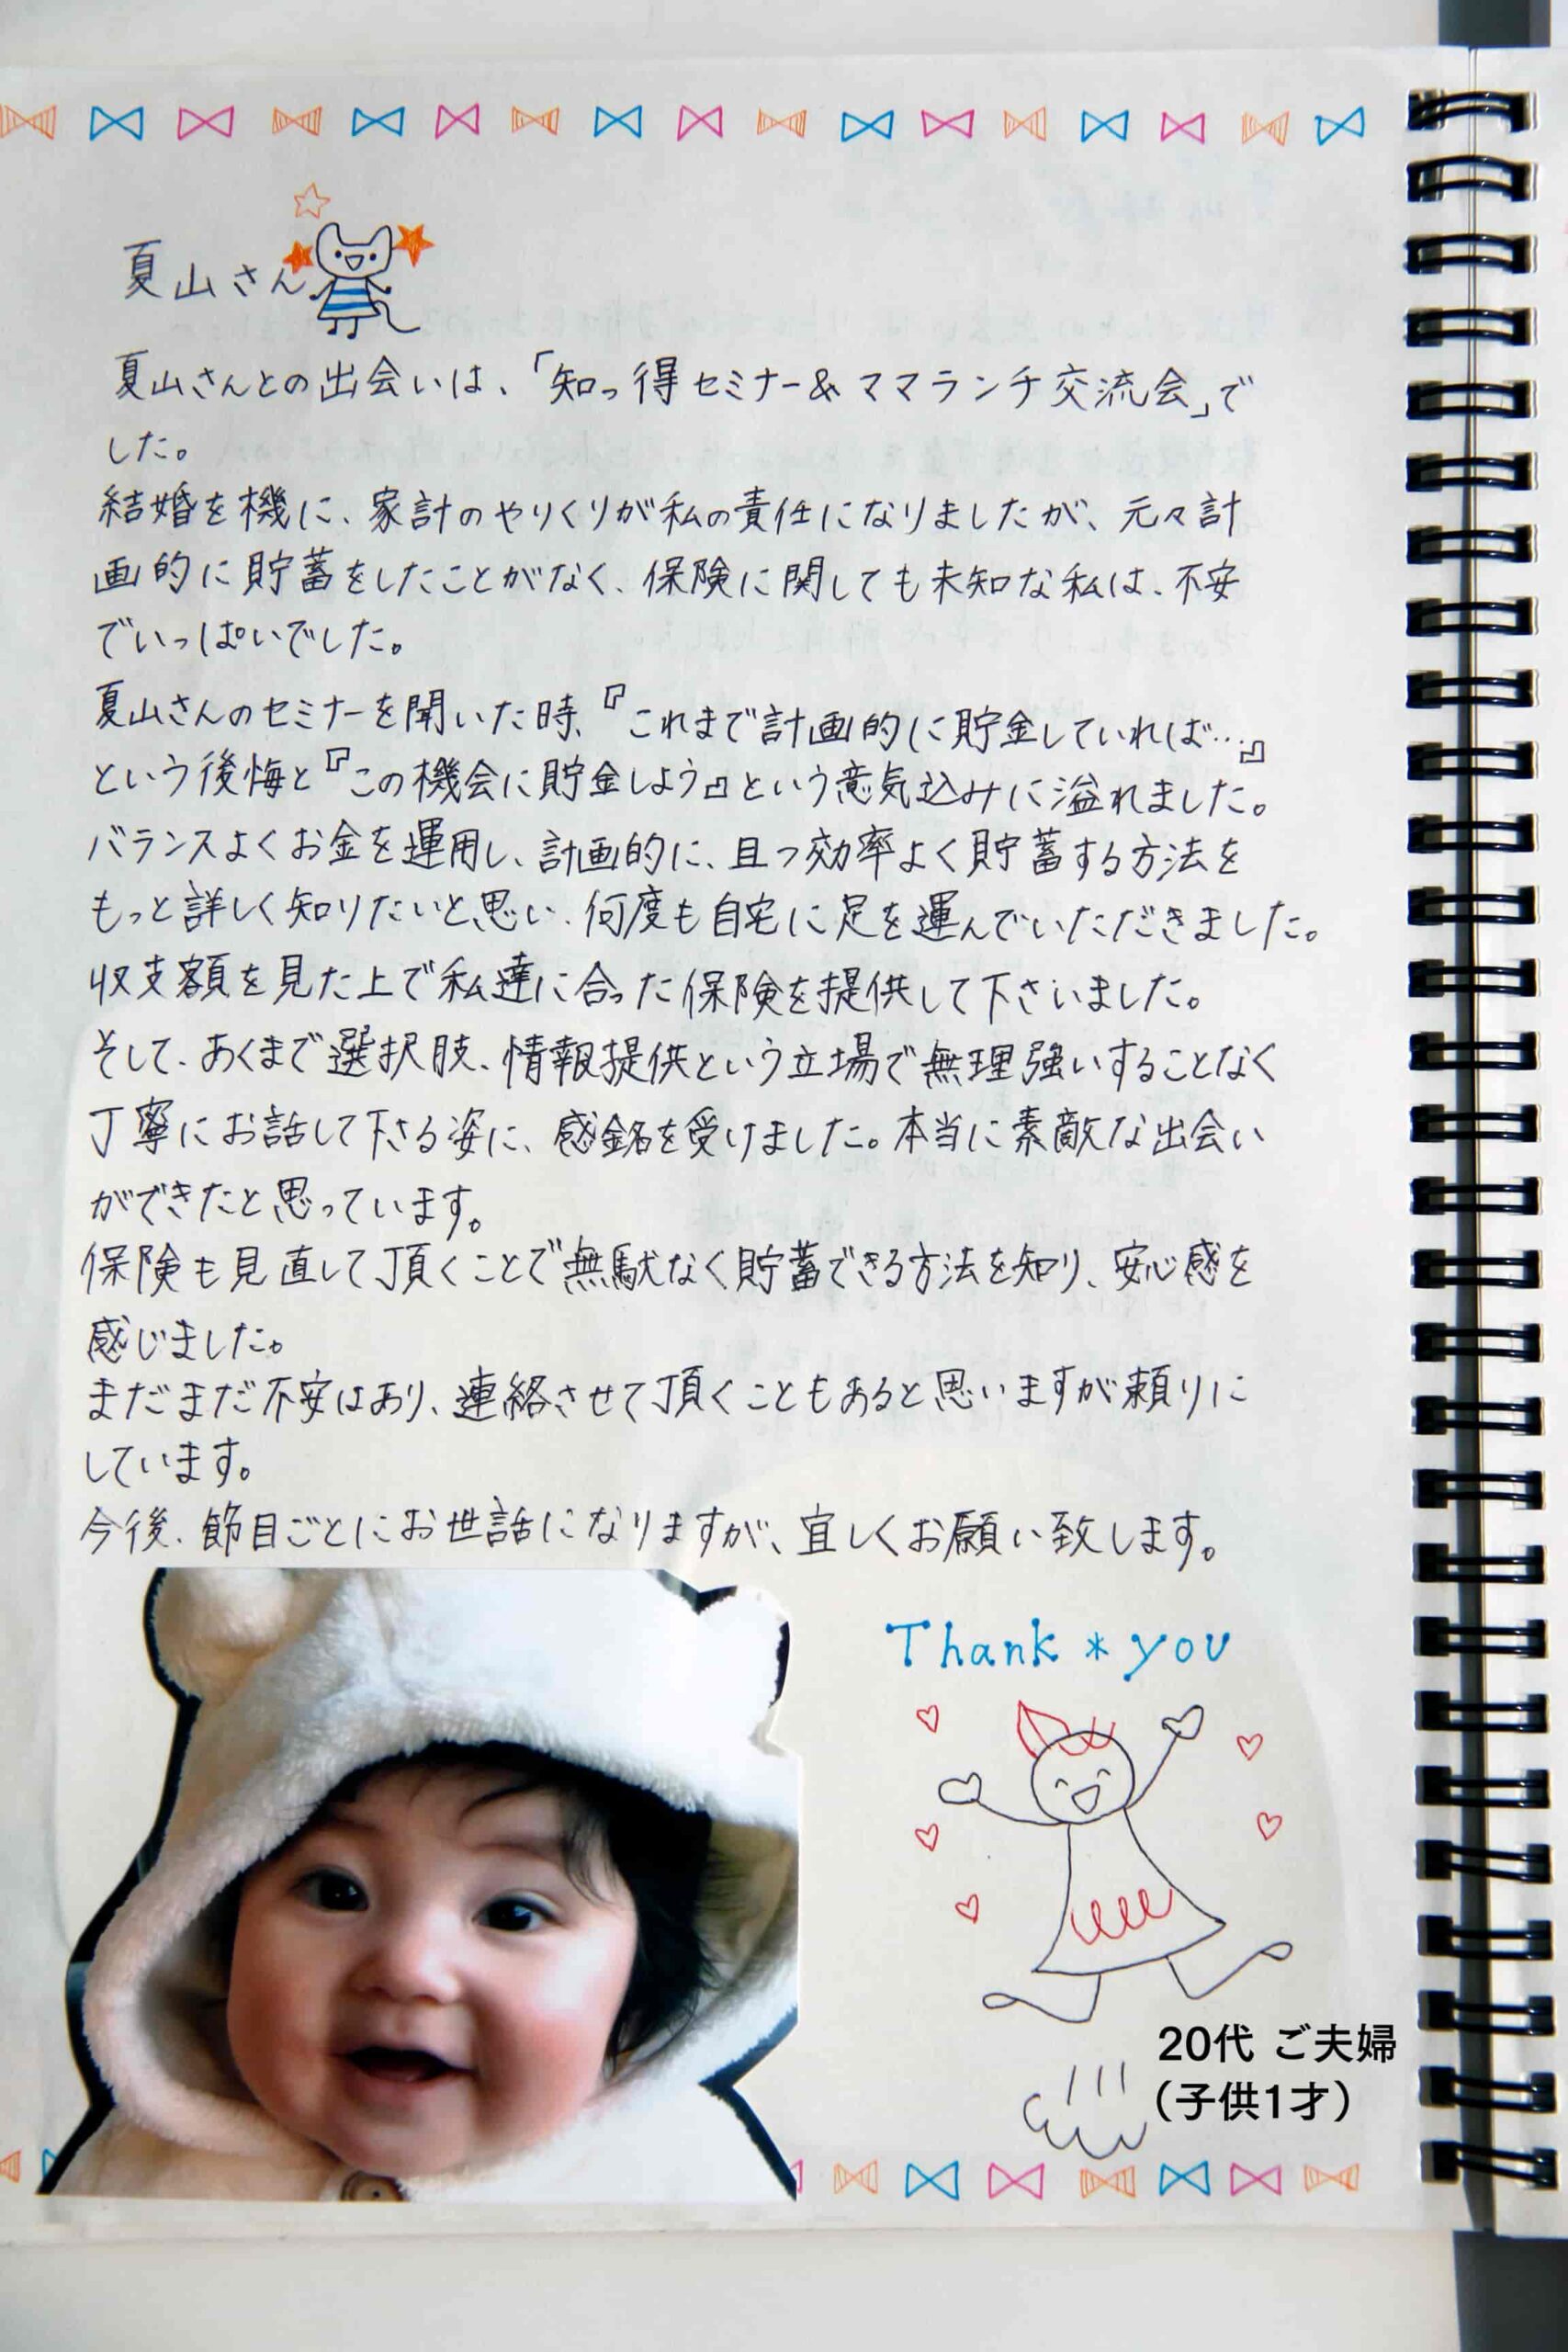 夏山さん
夏山さんとの出会いは、「知っ得セミナー&ママランチ交流会」で
した。
結婚を機に、家計のやりくりが私の責任になりましたが、元々計
画的に貯蓄をしたことがなく、保険に関しても未知な私は、不安
でいっぱいでした。
夏山さんのセミナーを聞いた時、『これまで計画的に貯金していれば…』
という後悔と『この機会に貯金しよう』という意気込みに溢れました。
バランスよくお金を運用し、計画的に、且つ効率よく貯蓄する方法を
もっと詳しく知りたいと思い、何度も自宅に足を運んでいただきました。
収支額を見た上で私達に合った保険を提供して下さいました。
そして、あくまで選択肢、情報提供という立場で無理強いすることなく
丁寧にお話して下さる姿に、感銘を受けました。本当に素敵な出会い
ができたと思っています。
保険も見直して頂くことで無駄なく貯蓄できる方法を知り、安心感を
感じました。
まだまだ不安はあり、連絡させて頂くこともあると思いますが頼りに
しています。
今後、節目ごとにお世話になりますが、宜しくお願い致します。
Thank * you
20代 ご夫婦
(子供1才)